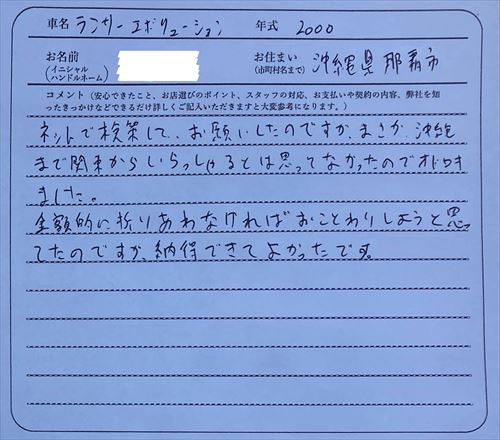 車名 ランサーエボリューション 年式 2000
お名前 お住まい 沖縄県那覇市
(イニシャル ハンドルネーム) (市町村名まで)
コメント（安心できたこと、お店選びのポイント、スタッフの対応、お支払いや契約の内容、弊社を知
ったきっかけなどできるだけ詳しくご記入いただきますと大変参考になります。）
ネットで検策して、お願いしたのですが、まさか、沖縄
まで関東からいらっしゃるとは思ってなかったのでオドロキ
ました。
金額的に折りあわなければおことわりしようと思っ
てたのですが、納得できてよかったです。